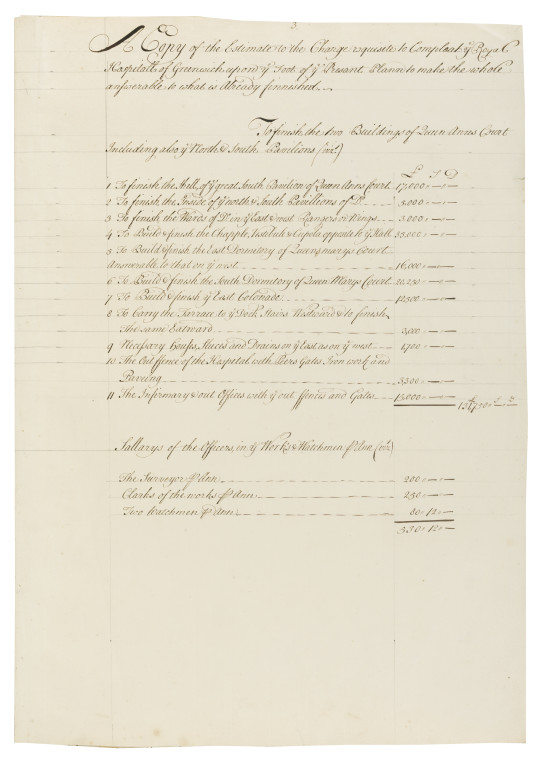 A Copy of the Estimate to the Charge requisite to Compleat yͤ Royal
Hospitall of Greenwich upon yͤ Foot of yͤ Present Plann to make the whole
answerable to what is Already finnished
To finish the two Buildings of Queen Anns Court
Including also yͤ North & South Pavilions (vizͭ)
£ S D
1 To finish the Hall, of yͤ great South Pavilion of Queen Anns Court 17,000"—"—
2 To finish the Inside of yͤ North & South Pavillions of Dͦ 3,000"—"—
3 To finish the Wards of Dͦ in yͤ East & west Ranges or Wings 3,000"—"—
4 To Build & finish the Chapple, Vestibule & Cupolo opposite to yͤ Hall 35,000"—"—
5 To Build & finish the East Dormetory of Queen Marys Court
Answerable to that on yͤ west 16,000"—"—
6 To Build & finish the South Dormetory of Queen Marys Court 20,230"—"—
7 To Build & finish yͤ East Colonade 12,500"—"—
8 To Carry the Tarrace to yͤ Dock Stairs Westward & to finish
The same Eastward "—"—
9 Necessary Houses, Sluces and Drains on yͤ East as on yͤ west 1,700"—"—
10 The Out ffence of the Hospital with Piers Gates Iron work and
Paveing "—"—
11 The Infirmary & out Offices with yͤ out ffences and Gates 15,000"—"—
Sallarys of the Officers, in yͤ Works & Watchmen ꝑ Ann (vizͭ)
The Surveyor ꝑ Ann 200"—"—
Clarks of the works ꝑ Ann 250"—"—
Two Watchmen ꝑ Ann 80"12"—
530"12"—